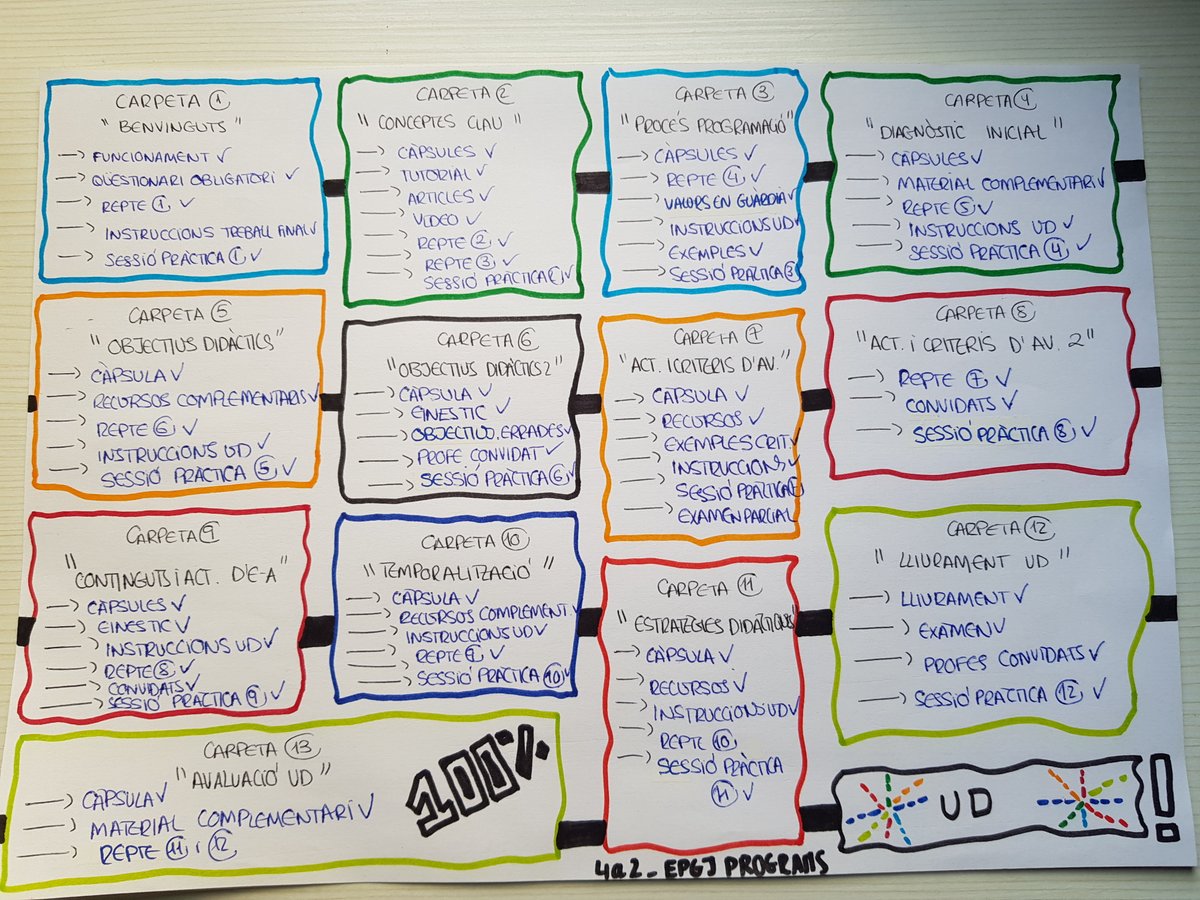 CARPETA 1
"BENVINGUTS"
→ FUNCIONAMENT ✓
→ QÜESTIONARI OBLIGATORI ✓
→ REPTE 1 ✓
→ INSTRUCCIONS TREBALL FINAL ✓
→ SESSIÓ PRÀCTICA 1 ✓
CARPETA 2
"CONCEPTES CLAU"
→ CÀPSULES ✓
→ TUTORIAL ✓
→ ARTICLES ✓
→ VIDEO ✓
→ REPTE 2 ✓
→ REPTE 3 ✓
→ SESSIÓ PRÀCTICA ✓
CARPETA 3
"PROCÉS PROGRAMACIÓ"
→ CÀPSULES ✓
→ REPTE 4 ✓
→ VALORS EN GUÀRDIA ✓
→ INSTRUCCIONS UD ✓
→ EXEMPLES ✓
→ SESSIÓ PRÀCTICA 3
CARPETA 4
"DIAGNÒSTIC INICIAL"
→ CÀPSULES ✓
→ MATERIAL COMPLEMENTARI ✓
→ REPTE 5 ✓
→ INSTRUCCIONS UD ✓
→ SESSIÓ PRÀCTICA 4 ✓
CARPETA 5
"OBJECTIUS DIDÀCTICS"
→ CÀPSULA ✓
→ RECURSOS COMPLEMENTARIS ✓
→ REPTE 6 ✓
→ INSTRUCCIONS UD ✓
→ SESSIÓ PRÀCTICA 5 ✓
CARPETA 6
"OBJECTIUS DIDÀCTICS 2"
→ CÀPSULA ✓
→ EINES TIC ✓
→ ERRADES ✓
→ PROFE CONVIDAT ✓
→ SESSIÓ PRÀCTICA 6 ✓
CARPETA 7
"ACT. I CRITERIS D'AV."
→ CÀPSULA ✓
→ RECURSOS ✓
→ EXEMPLES CRIT ✓
→ INSTRUCCIONS ✓
→ SESSIÓ PRÀCTICA 7
→ EXAMEN PARCIAL
CARPETA 8
"ACT. I CRITERIS D'AV. 2"
→ REPTE 7 ✓
→ CONVIDATS ✓
→ SESSIÓ PRÀCTICA 8 ✓
CARPETA 9
"CONTINGUTS I ACT. D'E-A"
→ CÀPSULES ✓
→ EINES TIC ✓
→ INSTRUCCIONS UD ✓
→ REPTE 8 ✓
→ CONVIDATS ✓
→ SESSIÓ PRÀCTICA 9 ✓
CARPETA 10
"TEMPORALITZACIÓ"
→ CÀPSULA ✓
→ RECURSOS COMPLEMENT. ✓
→ INSTRUCCIONS UD ✓
→ REPTE 9 ✓
→ SESSIÓ PRÀCTICA 10 ✓
CARPETA 11
"ESTRATÈGIES DIDÀCTIQUES"
→ CÀPSULA ✓
→ RECURSOS ✓
→ INSTRUCCIONS UD ✓
→ REPTE 10
→ SESSIÓ PRÀCTICA
11 ✓
CARPETA 12
"LLIURAMENT UD"
→ LLIURAMENT ✓
→ EXÀMEN ✓
→ PROFES CONVIDATS ✓
→ SESSIÓ PRÀCTICA 12 ✓
CARPETA 13
"AVALUACIÓ UD"
→ CÀPSULA ✓
→ MATERIAL COMPLEMENTARI ✓
→ REPTE 11 i 12
100%
UD !
4a2_EPGJ PROGRAMS